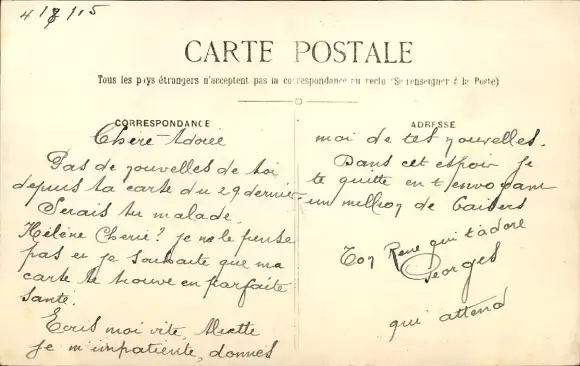 4/8/15
CARTE POSTALE
Tous les pays étrangers n'acceptent pas la correspondance au recto (Se renseigner à la Poste)
CORRESPONDANCE
Chère Adorée
Pas de nouvelles de toi
depuis ta carte du 29 dernier
Serais tu malade
Hélène Cherie? je ne le pense
pas et je souhaite que ma
carte te trouve en parfaite
santé.
Ecris moi vite, Miette
je m'impatiente, donnes
ADRESSE
moi de tes nouvelles.
Dans cet espoir je
te quitte en t'envoyant
un million de baisers
Ton René qui t'adore
Georges
qui attend